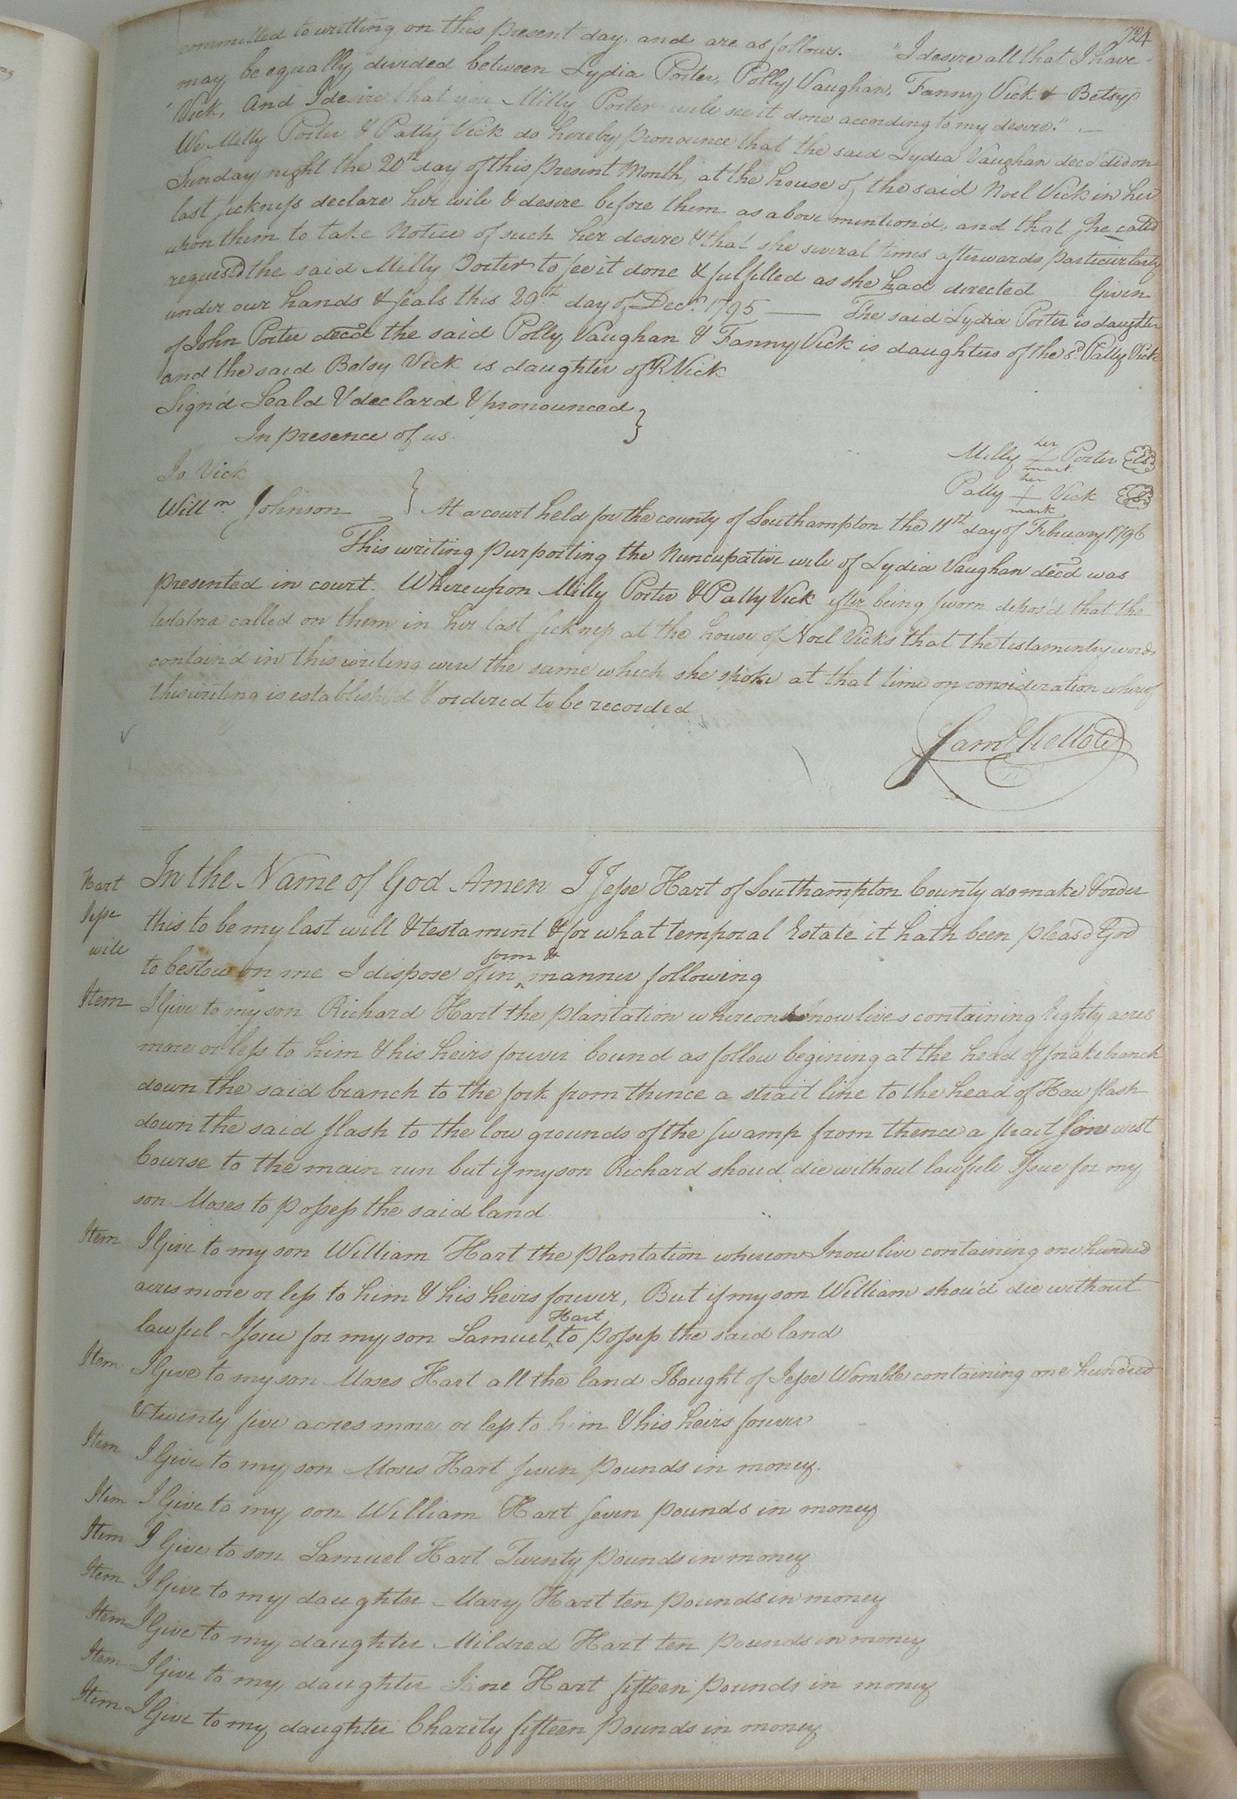 724
committed to writting on this present day, and are as follows. "I desire all that I have
may be equally divided between Lydia Porter, Polly Vaughan, Fanny Vick & Betsy
"Vick, And I desire that you Milly Porter will see it done according to my desire."
We Milly Porter & Patty Vick do hereby pronounce that the said Lydia Vaughan decd did on
Sunday night the 20th day of this present Month, at the house of the said Noel Vick in her
last sickness declare her will & desire before them as above mention'd, and that she called
upon them to take Notice of such her desire & that she several times afterwards particularly
requestd the said Milly Porter to see it done & fulfilled as she had directed Given
under our hands & seals this 29th day of Decr. 1795 — The said Lydia Porter is daughter
of John Porter decd the said Polly Vaughan & Fanny Vick is daughters of the sd Patty Vick
and the said Betsy Vick is daughter of R Vick
Sign'd Seald & declard & pronounced }
In presence of us
Jo. Vick
Willm Johnson }
Milly her + mark Porter LS
Patty her + mark Vick LS
At a court held for the county of Southampton the 11th day of February 1796
This writing purporting the Nuncupative will of Lydia Vaughan decd was
presented in court. Whereupon Milly Porter & Patty Vick after being sworn depos'd that the
testatrix called on them in her last sickness at the house of Noel Vicks that the testamentry words
contain'd in this writing were the same which she spoke at that time on consideration whereof
this writing is establish'd & ordered to be recorded
Saml Kello
Hart
Jesse
will
In the Name of God Amen I Jesse Hart of Southampton County do make & order
this to be my last will & testament & for what temporal Estate it hath been pleasd God
to bestow on me I dispose of in form & manner following
Item I Give to my son Richard Hart the plantation whereon he now lives containing Eighty acres
more or less to him & his heirs forever bound as follow begining at the head of snake branch
down the said branch to the fork from thence a strait line to the head of Haw slash
down the said slash to the low grounds of the swamp from thence a strait west
Course to the main run but if my son Richard shoud die without lawfull Issue for my
son Moses to possess the said land
Item I Give to my son William Hart the plantation whereon I now live containing one hundred
acres more or less to him & his heirs forever, But if my son William shou'd die without
lawful Issue for my son Samuel Hart to possess the said land
Item I Give to my son Moses Hart all the land I bought of Jesse Womble containing one hundred
& twenty five acres more or less to him & his heirs forever
Item I Give to my son Moses Hart seven pounds in money.
Item I Give to my son William Hart seven pounds in money
Item I Give to son Samuel Hart Twenty pounds in money
Item I Give to my daughter Mary Hart ten pounds in money
Item I Give to my daughter Mildred Hart ten pounds in money
Item I Give to my daughter Jane Hart fifteen pounds in money
Item I Give to my daughter Charity fifteen pounds in money